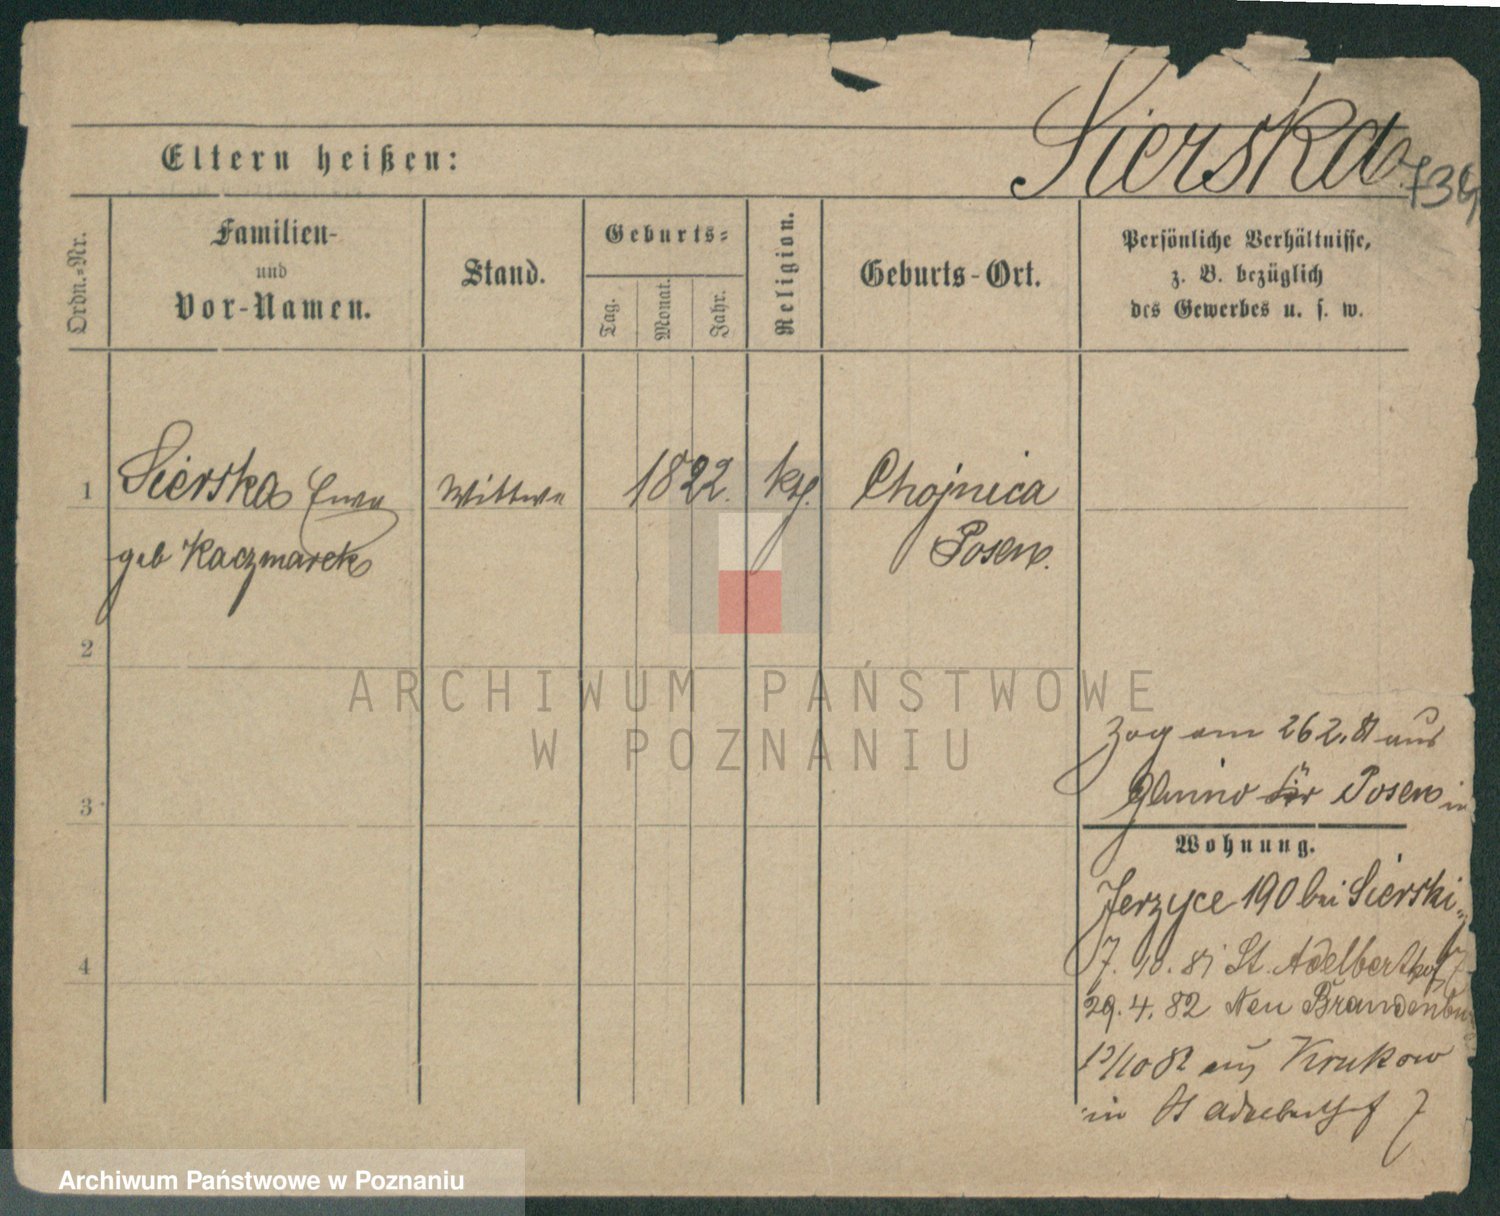 Sierska
739
Eltern heißen:
Ordn.-Nr.
Familien-
und
Vor-Namen.
Stand.
Geburts-
Tag.
Monat.
Jahr.
Religion.
Geburts-Ort.
Persönliche Verhältnisse,
z. B. bezüglich
des Gewerbes u. s. w.
1 Sierska Ewa Wittwe 1822. kth. Chojnica
geb Kaczmarek Posen.
2
3
4
zog am 26 2. 81 aus
Posen in
Wohnung.
Jerzyce 190 bei Sierski
7. 10. 81 St. Adelberthof 7
29. 4. 82 Neu Brandenbu
/10 82 aus Krukow
in St Adelberthof 7
ARCHIWUM PAŃSTWOWE
W POZNANIU
Archiwum Państwowe w Poznaniu